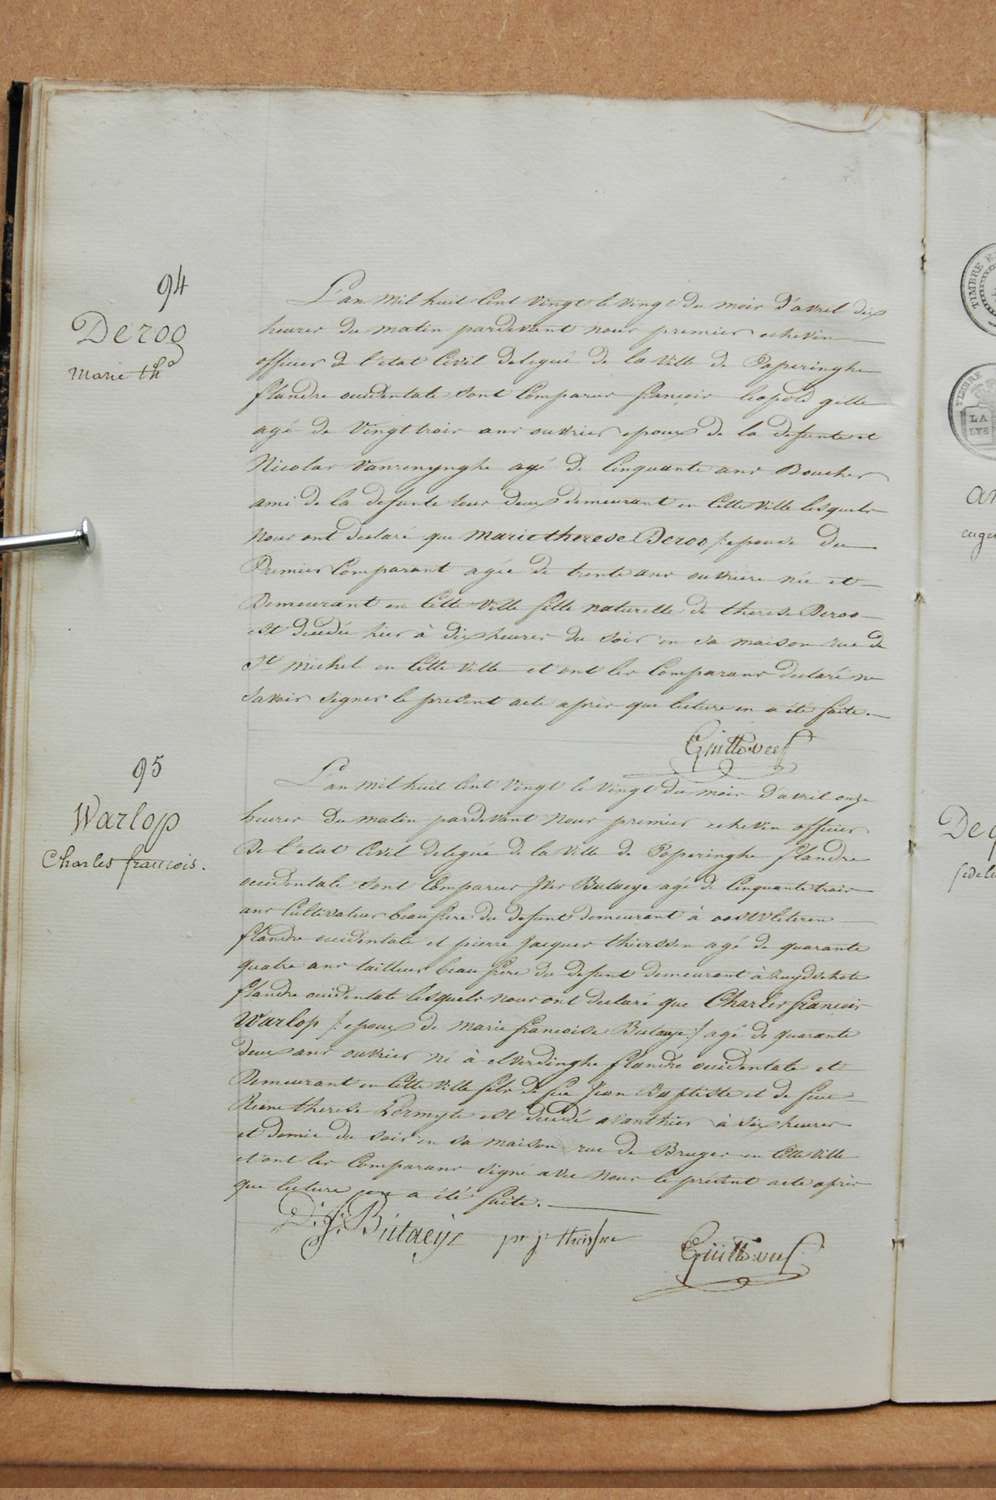 94
Deroo
Marie th.
L'an mil huit cent vingt le vingt du mois d'avril dix
heures du matin pardevant nous premier echevin
officier de l'etat civil delegué de la ville de Poperinghe
flandre occidentale sont comparus françois leopold gelle
agé de vingt trois ans ouvrier epoux de la defunte et
Nicolas Vanrenynghe agé de cinquante ans Boucher
ami de la defunte tous deux demeurant en cette ville lesquels
nous ont declaré que marie therese Deroo /: epouse du
Premier comparant agée de trente ans ouvriere née et
Demeurant en cette ville fille naturelle de therese Deroo
est decedée hier à dix heures du soir en sa maison rue de
St michel en cette ville et ont les comparans declaré ne
savoir signer le present acte après que lecture en a été faite.
95
Warlop
Charles francois.
L'an mil huit cent vingt le vingt du mois d'avril onze
heures du matin pardevant nous premier echevin officier
de l'etat civil delegué de la ville de Poperinghe flandre
occidentale sont comparus Butaeye agé de cinquante trois
ans cultivateur beau frere du defunt demeurant à oostvleteren
flandre occidentale et pierre jacques thierssen agé de quarante
quatre ans tailleur beau frere du defunt demeurant à
flandre occidentale lesquels nous ont declaré que Charles francois
Warlop /: epoux de marie francoise Butaeye :/ agé de quarante
deux ans ouvrier né à elverdinghe flandre occidentale et
Demeurant en cette ville fils de feu Jean Baptiste et de feue
therese est decedé avanthier à six heures
et demie du soir en sa maison rue de Bruges en cette ville
et ont les comparans signé avec nous le présent acte après
que lecture en a été faite.
D: j: Bútaeÿe
TIMBRE
LA
LYS
De